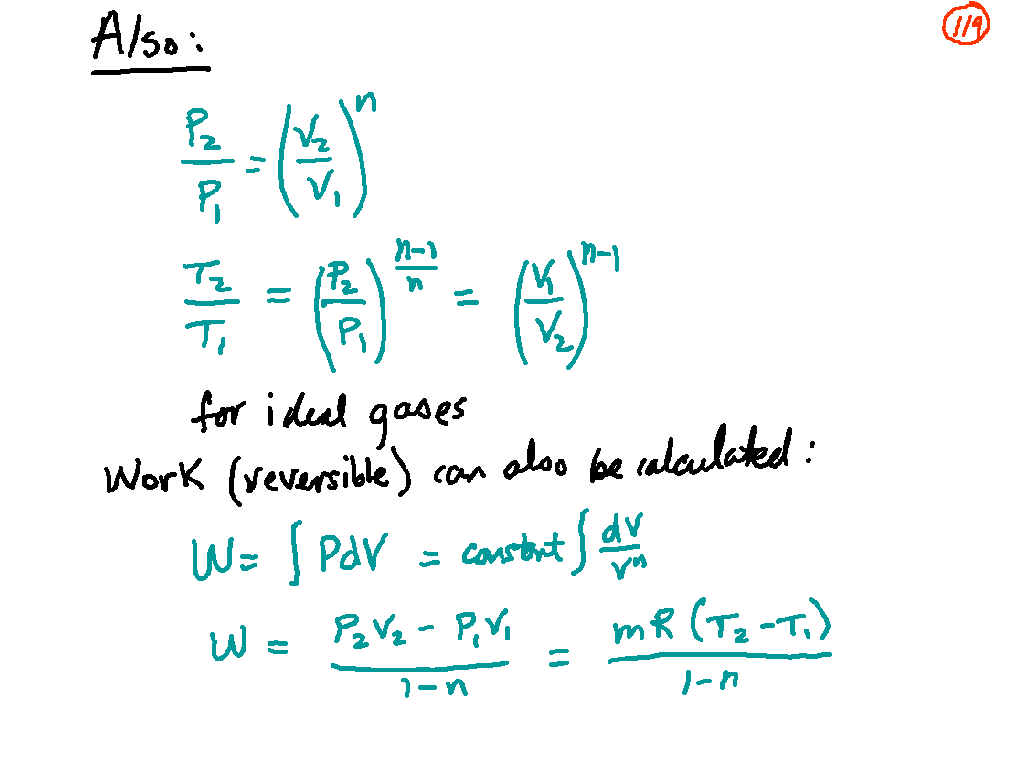 Also:
119
P₂/P₁ = (V₂/V₁)ⁿ
T₂/T₁ = (P₂/P₁)^((n-1)/n) = (V₁/V₂)^(n-1)
for ideal gases
Work (reversible) can also be calculated:
W = ∫ PdV = constant ∫ dV/Vⁿ
W = (P₂V₂ - P₁V₁)/(1-n) = mR(T₂-T₁)/(1-n)